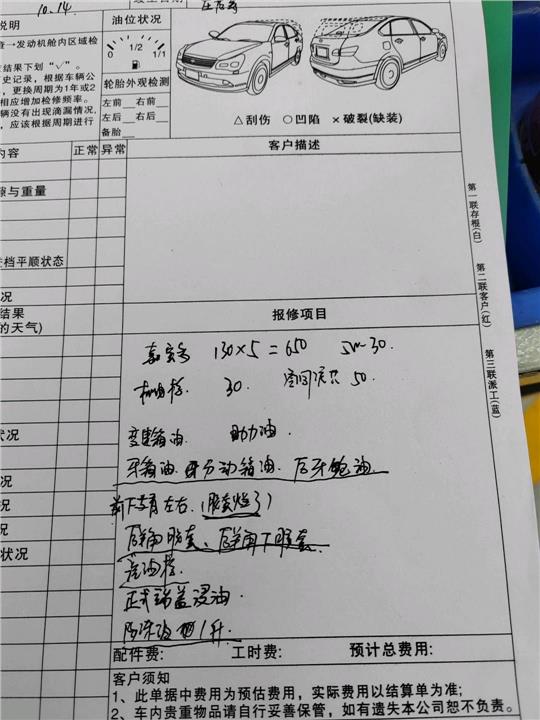 10.14
说明
油位状况
查→发动机舱内区域检
结果下划"√"。
历史记录，根据车辆公
，更换周期为1年或2
相应增加检修频率。
辆没有出现滴漏情况,
，应该根据周期进行
0 1/2 1/1
轮胎外观检测
左前 右前
左后 右后
备胎
△刮伤 ○凹陷 ×破裂(缺装)
内容 正常 异常
客户描述
隙与重量
档平顺状态
况
结果
的天气)
报修项目
嘉实多 130×5=650 5W-30.
机油格 30. 50.
变速箱油. 助力油.
牙箱油. 分动箱油. 后牙包油
前下支臂左右.(胶套烂了)
后羊角胶套、后羊角下胶套.
汽油格.
正时端盖浸油.
防冻液 1升.
状况
况
况
况
状况
第一联存根(白)
第二联客户(红)
第三联派工(蓝)
配件费: 工时费: 预计总费用:
客户须知
1、此单据中费用为预估费用，实际费用以结算单为准;
2、车内贵重物品请自行妥善保管，如有遗失本公司恕不负责。